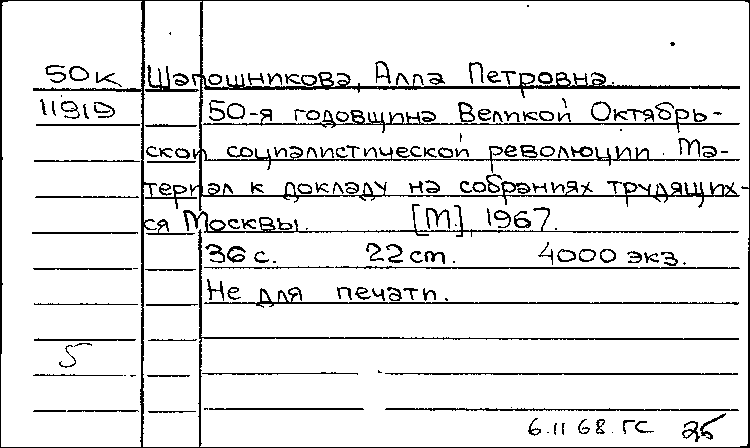 50к Шапошникова, Алла Петровна.
11919 50-я годовщина Великой Октябрь-
ской социалистической революции. Ма-
териал к докладу на собраниях трудящих-
ся Москвы. [М], 1967.
36 с. 22 см. 4000 экз.
Не для печати.
5
6.11 68. ГС 25